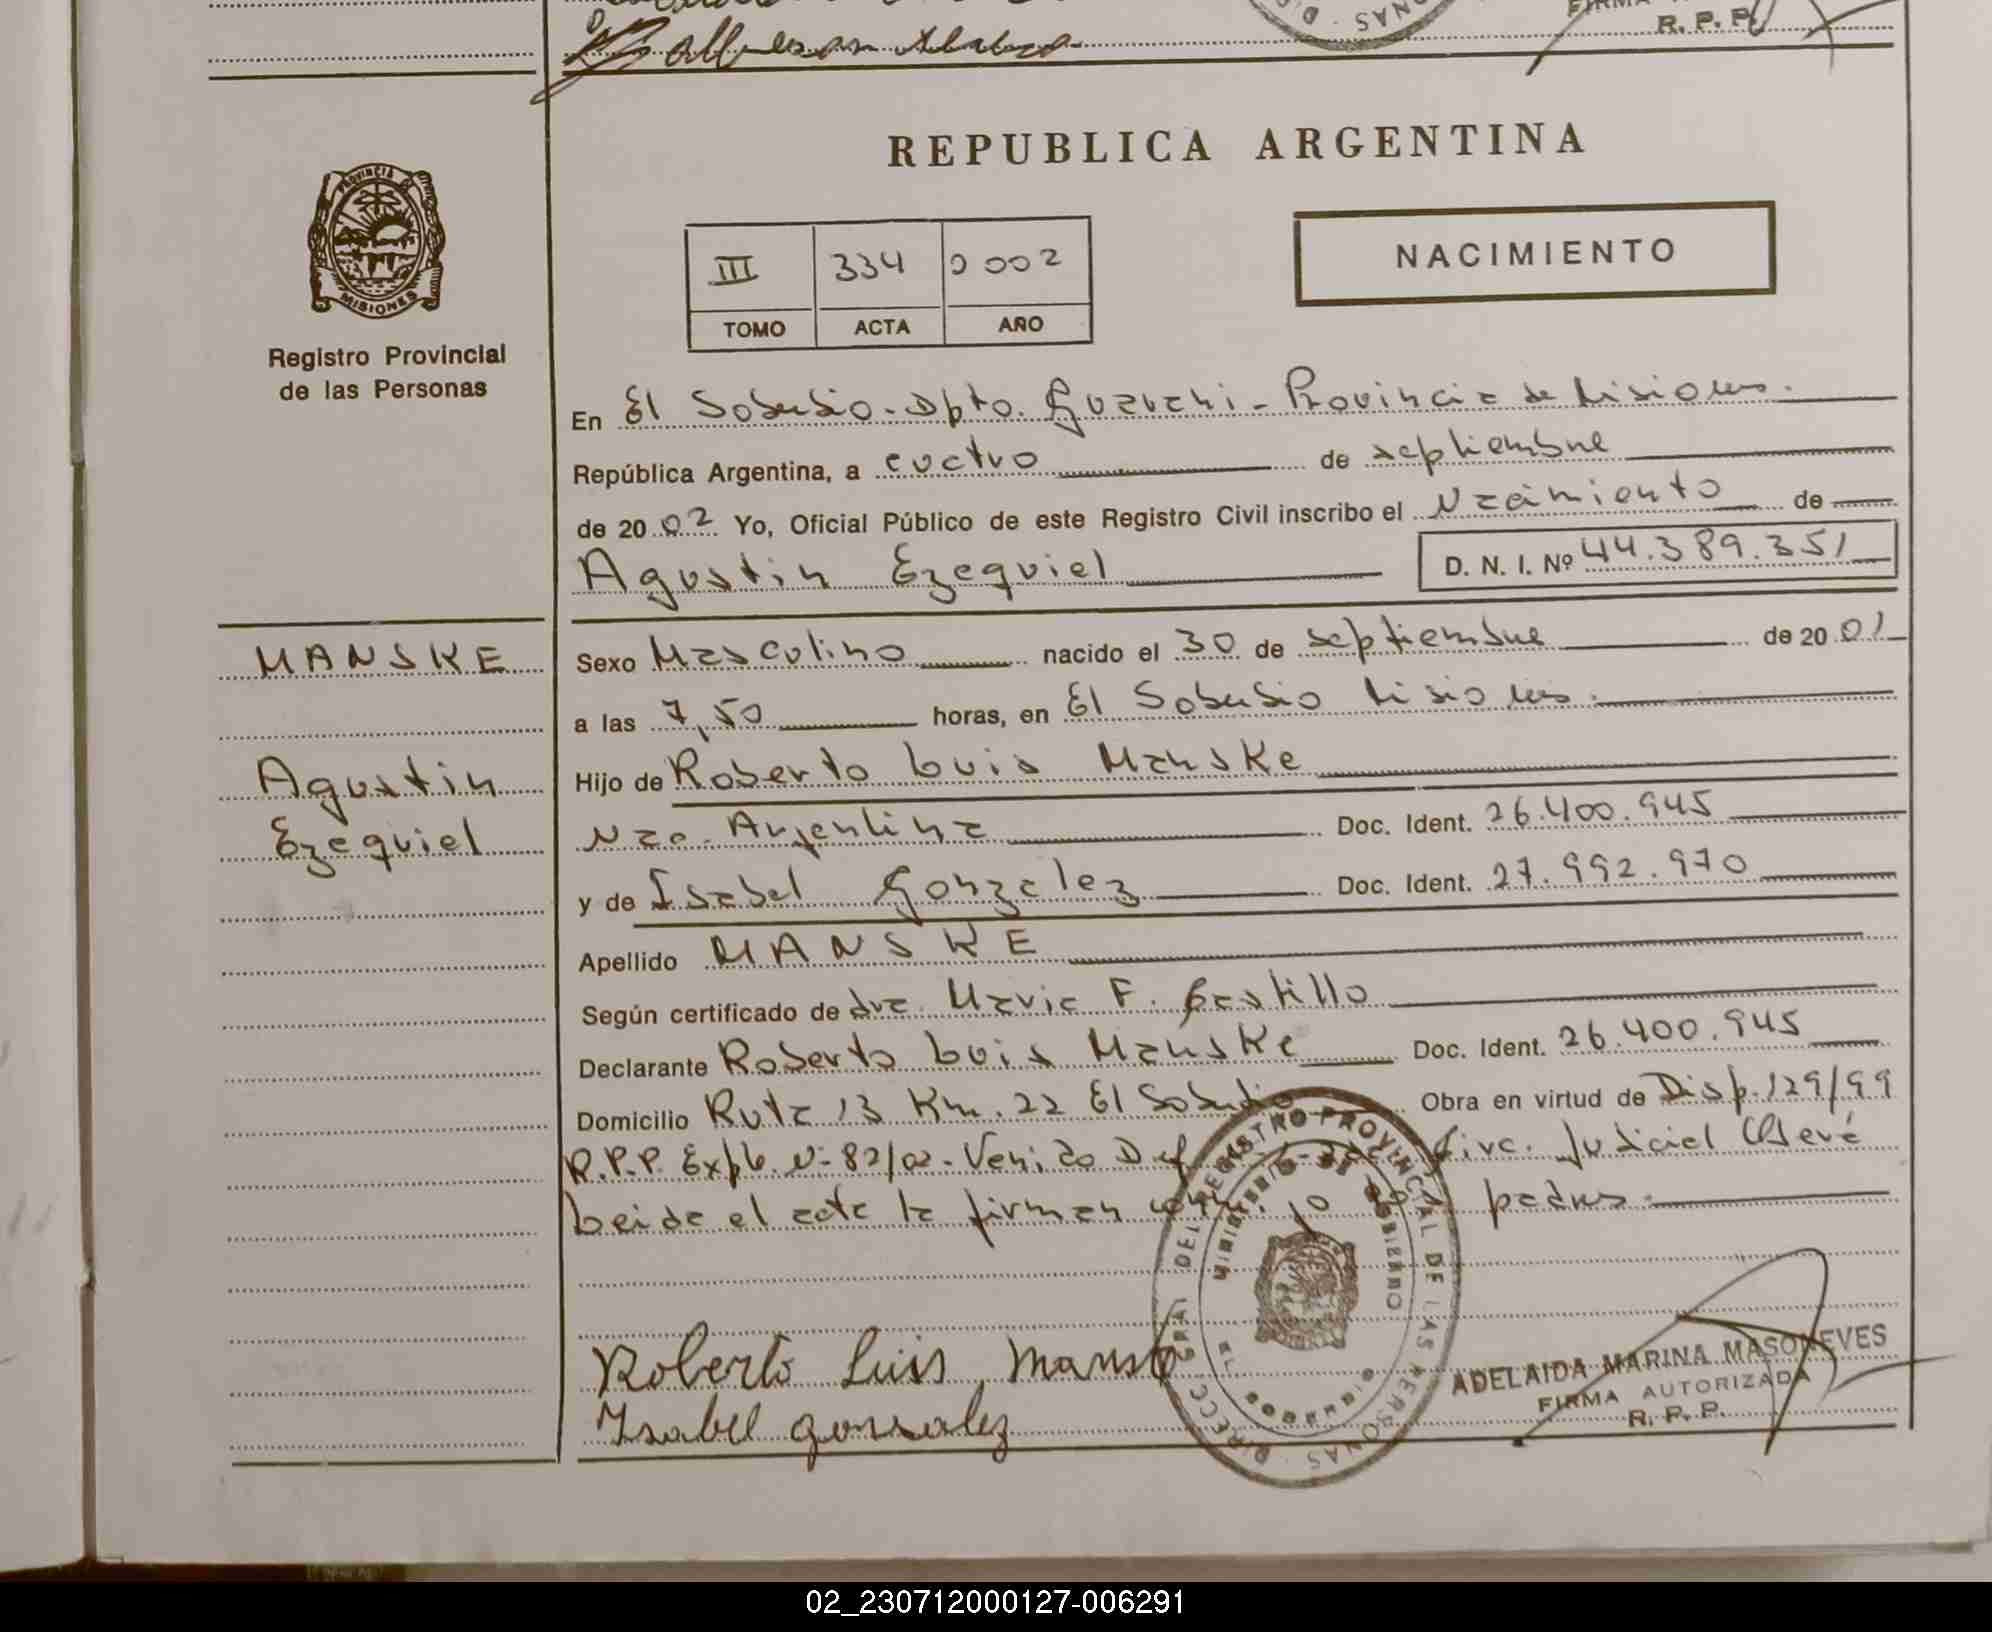 FIRMA
R. P. P.
REPUBLICA ARGENTINA
PROVINCIA DE
MISIONES
Registro Provincial
de las Personas
III 334 2002
TOMO ACTA AÑO
NACIMIENTO
En El Soberbio - Dpto. Guarani - Provincia de Misiones.
República Argentina, a cuatro de septiembre
de 2002 Yo, Oficial Público de este Registro Civil inscribo el Nacimiento de
Agustin Ezequiel D. N. I. Nº 44.389.351
MANSKE
Agustin
Ezequiel
Sexo Masculino nacido el 30 de septiembre de 2001
a las 7,50 horas, en El Soberbio Misiones.
Hijo de Roberto Luis Manske
Nac. Argentina Doc. Ident. 26.400.945
y de Isabel Gonzalez Doc. Ident. 27.992.970
Apellido MANSKE
Según certificado de dra. Maria F. Castillo
Declarante Roberto Luis Manske Doc. Ident. 26.400.945
Domicilio Ruta 13 Km. 22 El Soberbio Obra en virtud de Disp. 129/99
R.P.P. Expte. Nº 82/02 - Venido Def Circ. Judicial Oberá
Leida el acta la firman padres.
Roberto Luis Manske
Isabel gonsalez
DIRECC. GRAL DEL REGISTRO PROVINCIAL DE LAS PERSONAS
MINISTERIO DE GOBIERNO
EL SOBERBIO
ADELAIDA MARINA MASONEVES
FIRMA AUTORIZADA
R. P. P.
02_230712000127-006291